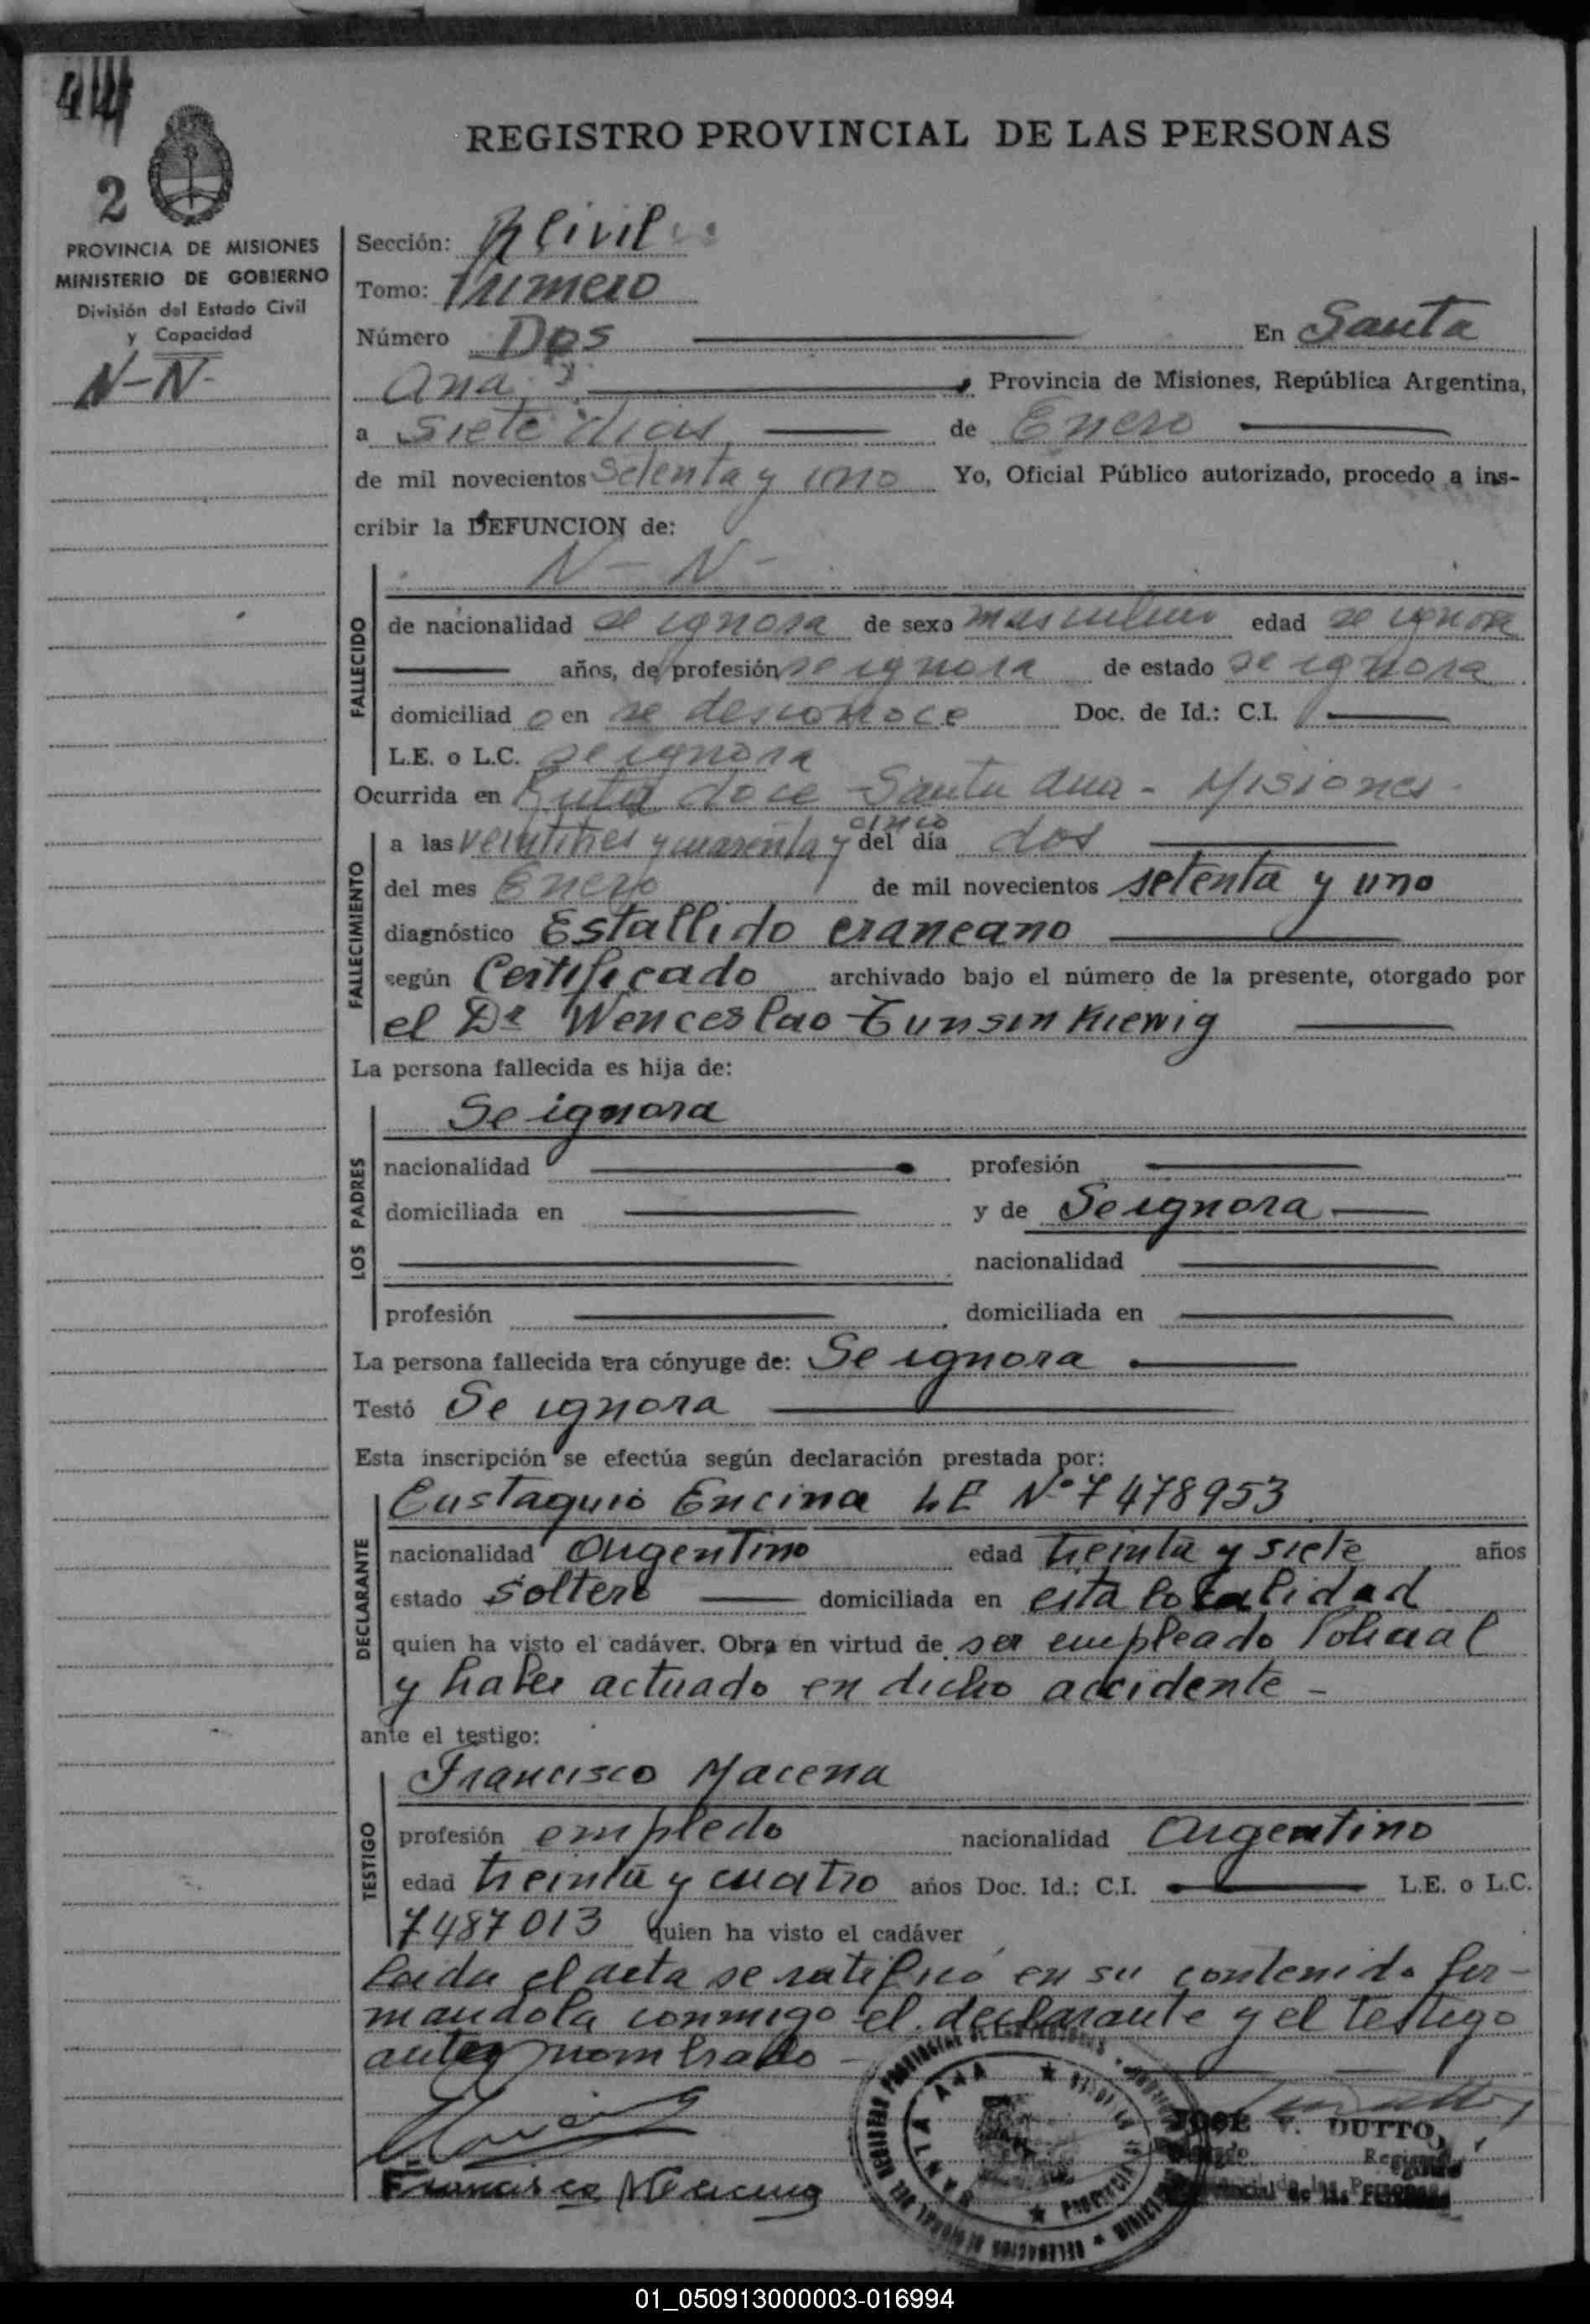 44
REGISTRO PROVINCIAL DE LAS PERSONAS
2
PROVINCIA DE MISIONES
MINISTERIO DE GOBIERNO
División del Estado Civil
y Capacidad
N-N-
Sección: R Civil
Tomo: Primero
Número Dos En Santa
Ana Provincia de Misiones, República Argentina,
a siete dias de Enero
de mil novecientos Setenta y uno Yo, Oficial Público autorizado, procedo a ins-
cribir la DEFUNCION de:
N - N -
FALLECIDO
de nacionalidad se ignora de sexo masculino edad se ignora
años, de profesión se ignora de estado se ignora
domiciliad o en se desconoce Doc. de Id.: C.I.
L.E. o L.C. se ignora
Ocurrida en Ruta doce Santa Ana - Misiones -
FALLECIMIENTO
a las veintitres y cuarenta y cinco del día dos
del mes Enero de mil novecientos setenta y uno
diagnóstico Estallido craneano
según Certificado archivado bajo el número de la presente, otorgado por
el Dr Wenceslao
La persona fallecida es hija de:
LOS PADRES
Se ignora
nacionalidad profesión
domiciliada en y de Se ignora
nacionalidad
profesión domiciliada en
La persona fallecida era cónyuge de: Se ignora
Testó Se ignora
Esta inscripción se efectúa según declaración prestada por:
DECLARANTE
Eustaquio Encina LE Nº 7478953
nacionalidad Argentino edad treinta y siete años
estado soltero domiciliada en esta localidad
quien ha visto el cadáver. Obra en virtud de ser empleado Policial
y haber actuado en dicho accidente -
ante el testigo:
TESTIGO
Francisco Macena
profesión empledo nacionalidad Argentino
edad treinta y cuatro años Doc. Id.: C.I. L.E. o L.C.
7487013 quien ha visto el cadáver
Leida el acta se ratificó en su contenido fir-
mandola conmigo el declarante y el testigo
antes nombrado -
SANTA ANA
JOSE V. DUTTO
Francisco Macena
01_050913000003-016994